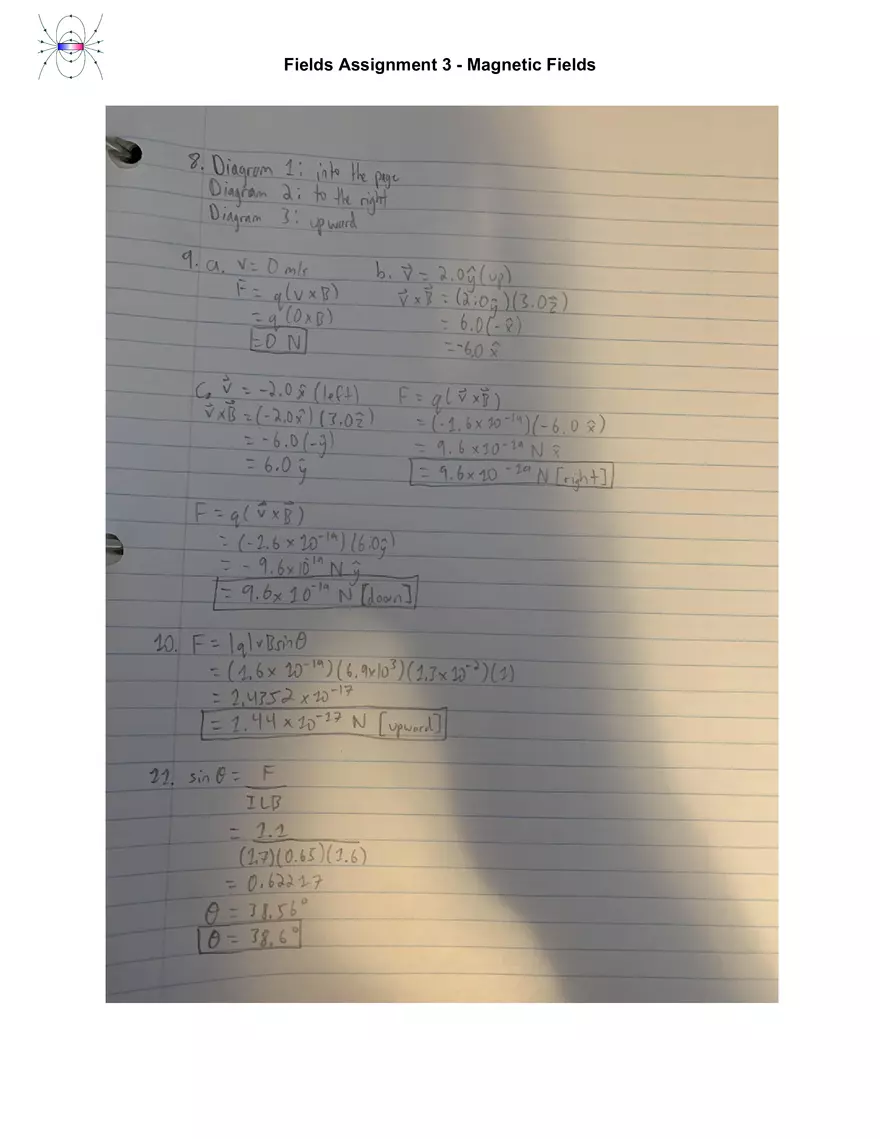 Fields Assignment 3 - Magnetic Fields
8. Diagram 1: into the page
Diagram 2: to the right
Diagram 3: upward
9. a. v = 0 m/s
F = q(v×B)
= q(0×B)
= 0 N
b. v⃗ = 2.0ŷ (up)
v⃗×B⃗ = (2.0ŷ)(3.0ẑ)
= 6.0(-x̂)
= -6.0 x̂
F = q(v⃗×B⃗)
= (-1.6×10⁻¹⁹)(-6.0 x̂)
= 9.6×10⁻¹⁹ N x̂
= 9.6×10⁻¹⁹ N [right]
c. v⃗ = -2.0x̂ (left)
v⃗×B⃗ = (-2.0x̂)(3.0ẑ)
= -6.0(-ŷ)
= 6.0 ŷ
F = q(v⃗×B⃗)
= (-1.6×10⁻¹⁹)(6.0ŷ)
= -9.6×10⁻¹⁹ N ŷ
= 9.6×10⁻¹⁹ N [down]
10. F = |q|vBsinθ
= (1.6×10⁻¹⁹)(6.9×10³)(1.3×10⁻²)(1)
= 1.4352×10⁻¹⁷
= 1.44×10⁻¹⁷ N [upward]
11. sin θ = F
ILB
= 1.1
(1.7)(0.65)(1.6)
= 0.62217
θ = 38.56°
θ = 38.6°